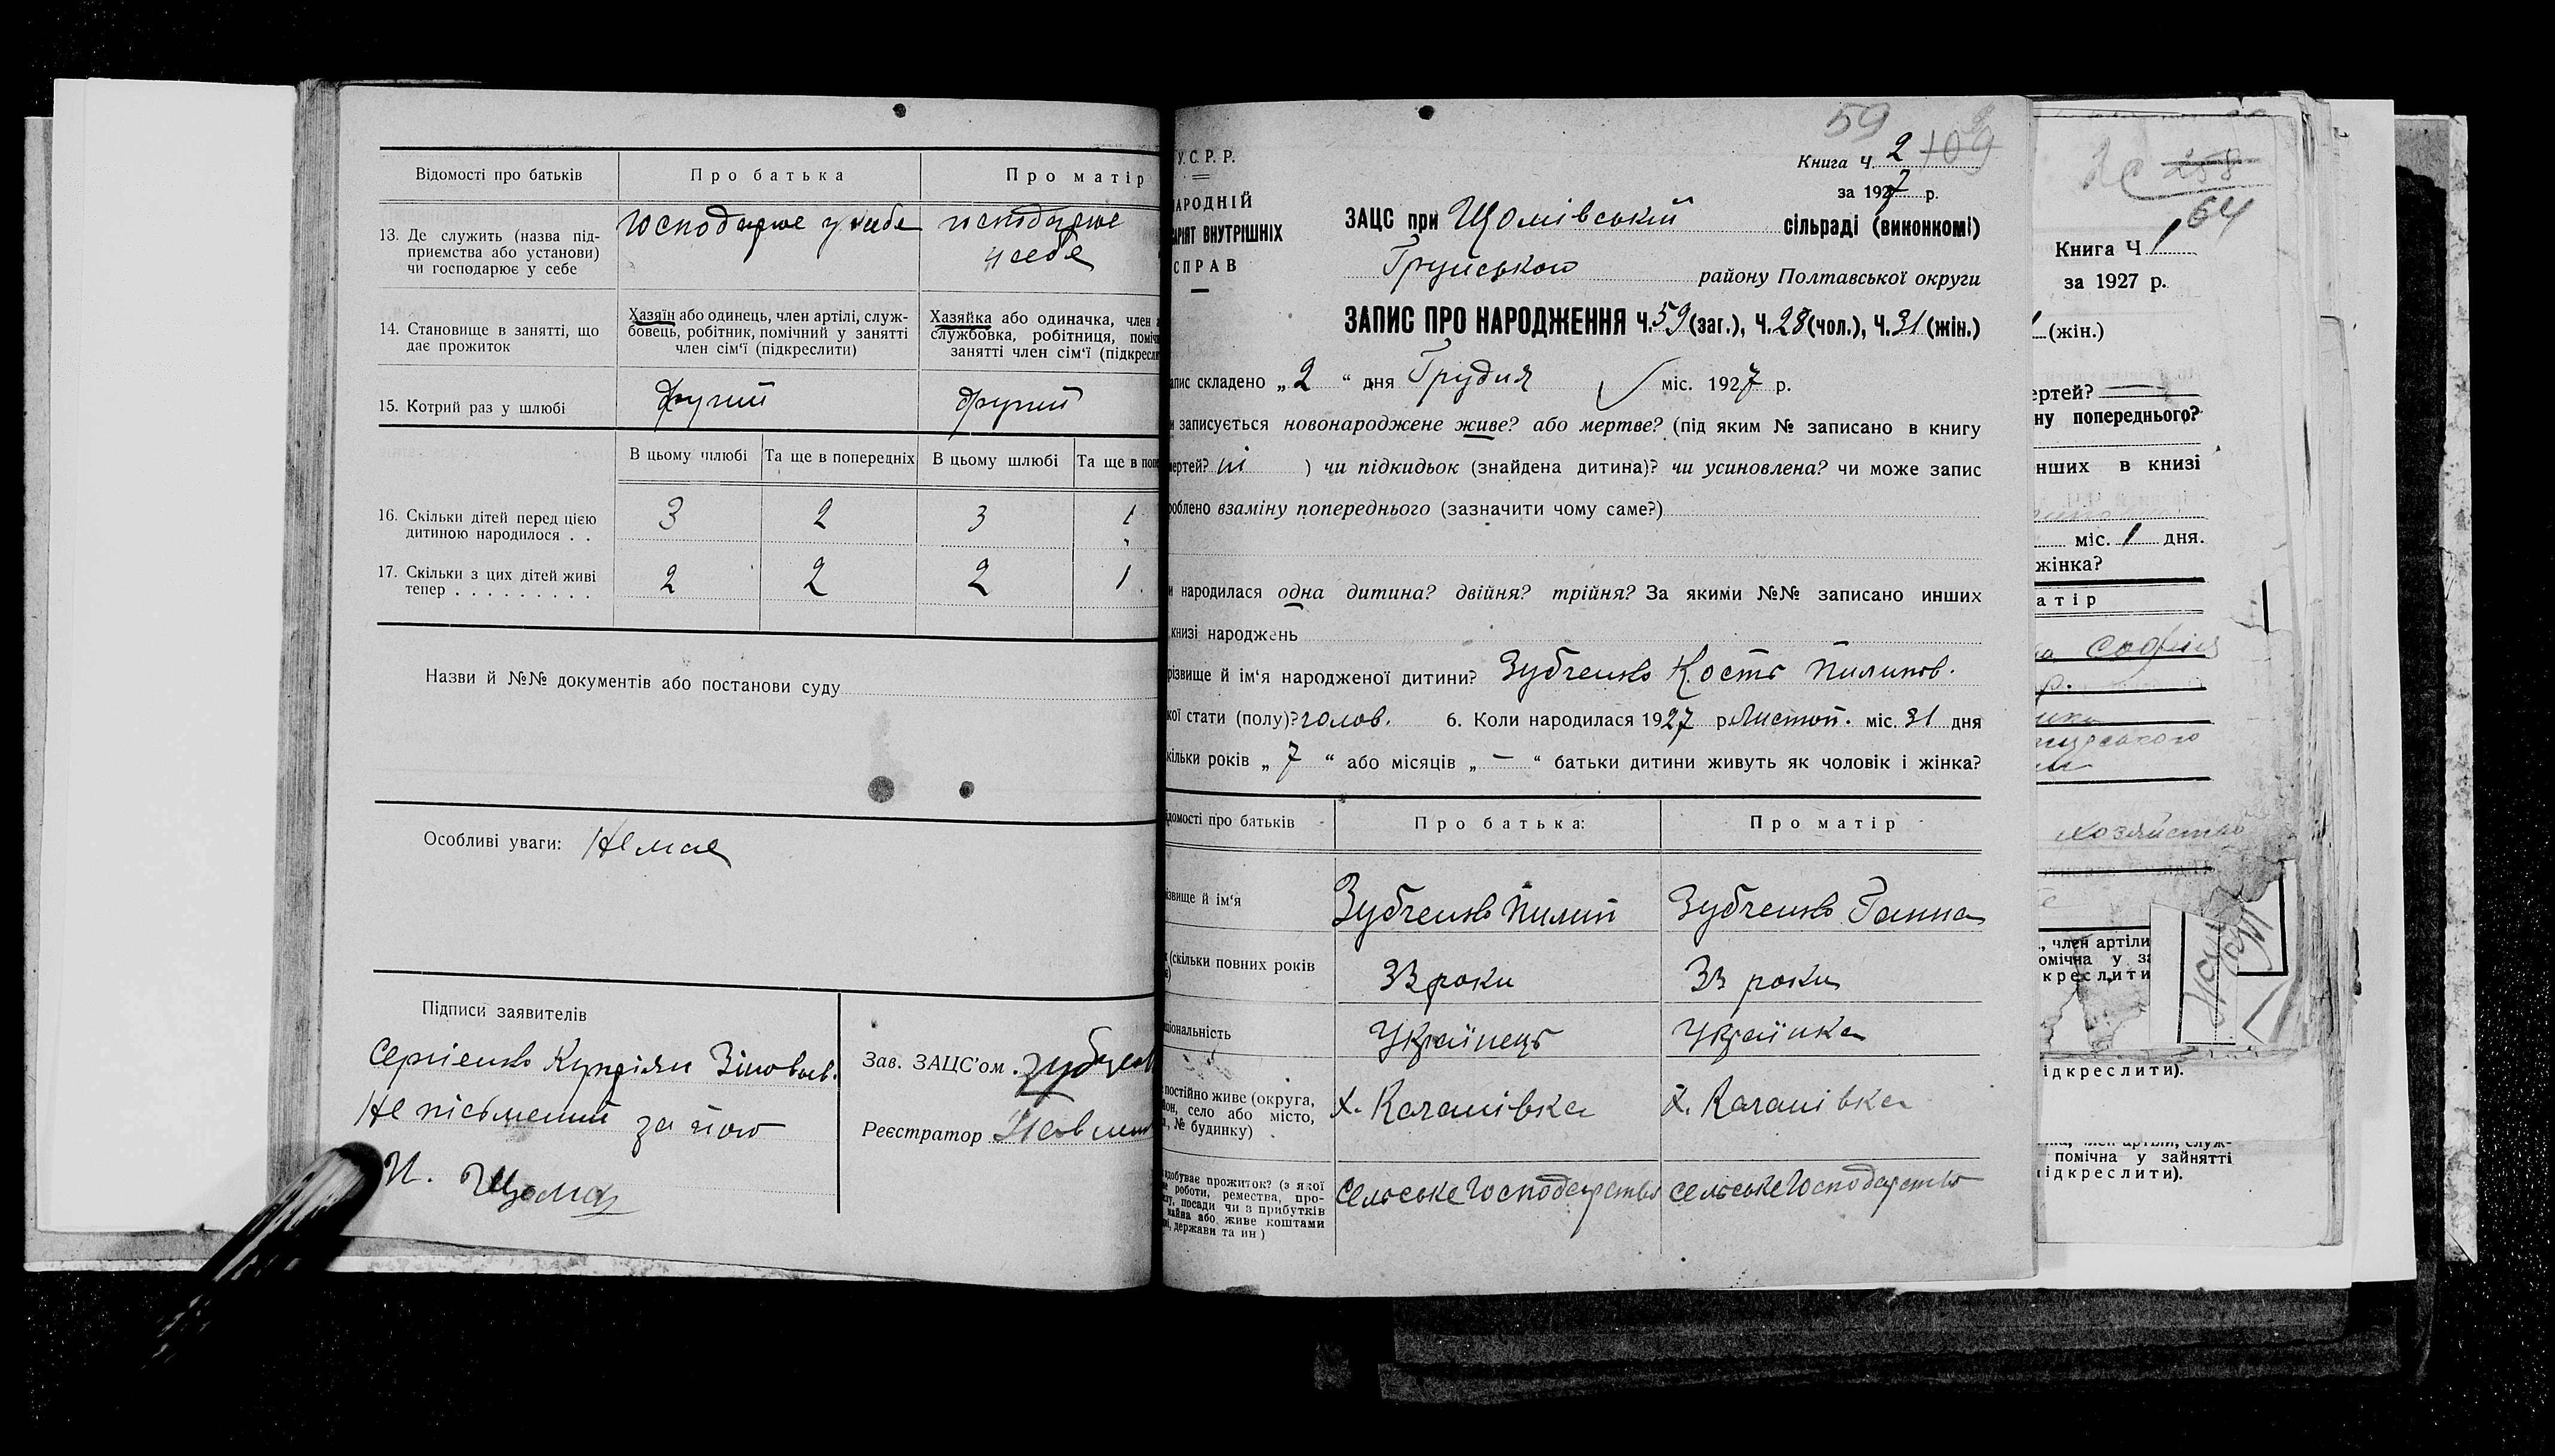 Відомості про батьків
Про батька
Про матір
13. Де служить (назва під-
приємства або установи)
чи господарює у себе
господарює у себе
господарює
у себе
14. Становище в занятті, що
дає прожиток
Хазяїн або одинець, член артілі, служ-
бовець, робітник, помічний у занятті
член сім'ї (підкреслити)
Хазяйка або одиначка, член
службовка, робітниця,
занятті член сім'ї
15. Котрий раз у шлюбі
другий
другий
В цьому шлюбі
Та ще в попередніх
В цьому шлюбі
Та ще в
16. Скільки дітей перед цією
дитиною народилося . .
3
2
3
1
17. Скільки з цих дітей живі
тепер . . . . . . . . .
2
2
2
1
Назви й №№ документів або постанови суду
Особливі уваги: Немає
Підписи заявителів
Сергіенко Купріян Зіновьев.
Не пісьмений за його
И. Щома
Зав. ЗАЦС'ом
Реєстратор
59
У.С.Р.Р.
Книга Ч. 2
за 1927 р.
ВНУТРІШНІХ
СПРАВ
ЗАЦС при Щомівській сільраді (виконкомі)
району Полтавської округи
ЗАПИС ПРО НАРОДЖЕННЯ Ч. 59 (заг.), Ч. 28 (чол.), Ч. 31 (жін.)
складено „2“ дня Грудня міс. 1927 р.
записується новонароджене живе? або мертве? (під яким № записано в книгу
) чи підкидьок (знайдена дитина)? чи усиновлена? чи може запис
взаміну попереднього (зазначити чому саме?)
народилася одна дитина? двійня? трійня? За якими №№ записано инших
книзі народжень
й ім'я народженої дитини? Зубченко Кость Пилипов.
стати (полу)? чолов. 6. Коли народилася 1927 р. Листоп. міс. 31 дня
років „7“ або місяців „—“ батьки дитини живуть як чоловік і жінка?
про батьків
Про батька:
Про матір
й ім'я
Зубченко Пилип
Зубченко Ганна
(скільки повних років
33 роки
33 роки
Українець
Українка
постійно живе (округа,
село або місто,
№ будинку)
х. Качанівка
х. Качанівка
прожиток? (з якої
роботи, ремества, про-
посади чи з прибутків
майна або живе коштами
держави та ин)
Сельське Господарство
Сельське Господарство
258
64
Книга Ч. 1
за 1927 р.
(жін.)
попереднього?
инших в книзі
міс. 1 дня.
жінка?
Софія
хозяйство
член артіли
помічна у зайнятті